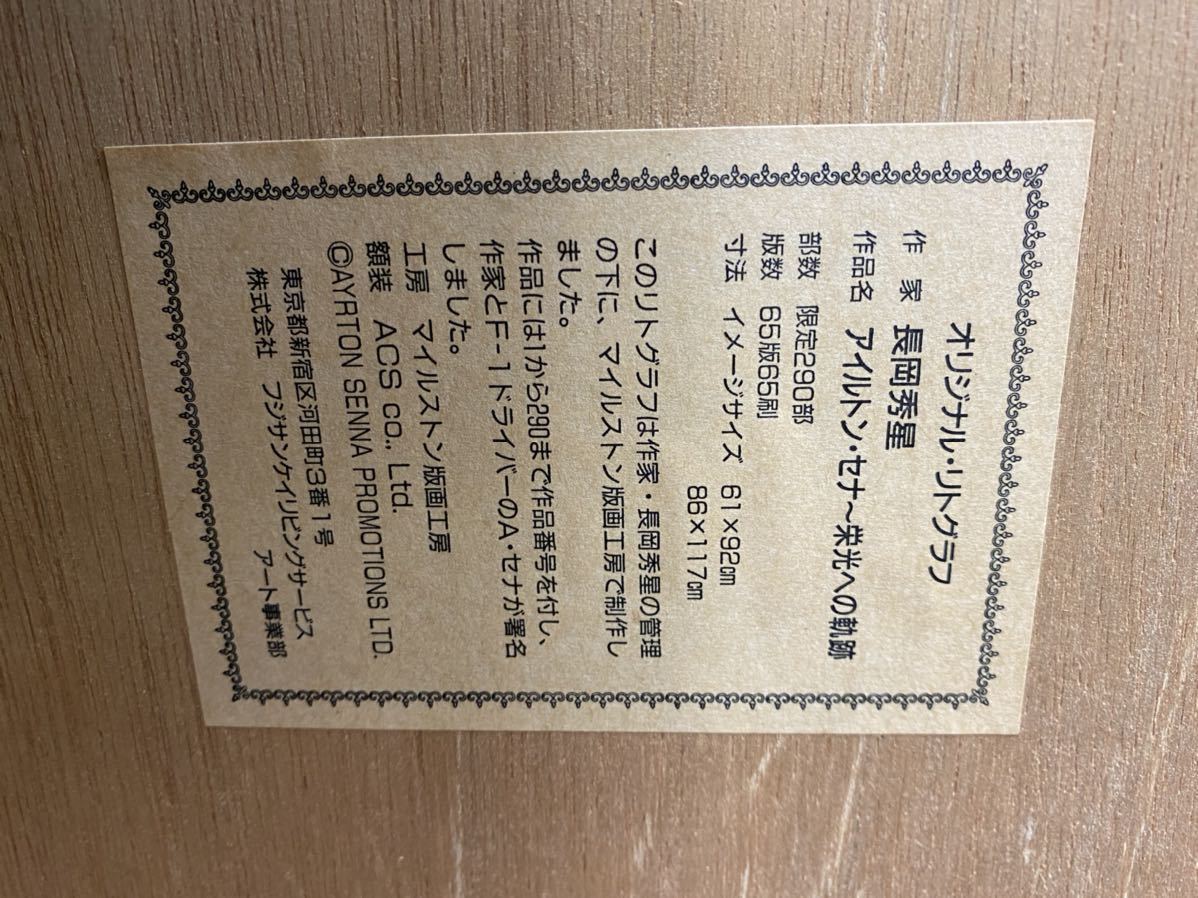 オリジナル・リトグラフ
作　家　長岡秀星
作品名　アイルトン・セナ～栄光への軌跡
部数　限定290部
版数　65版65刷
寸法　イメージサイズ　61×92㎝
86×117㎝
このリトグラフは作家・長岡秀星の管理
の下に、マイルストン版画工房で制作し
ました。
作品には1から290まで作品番号を付し、
作家とF-1ドライバーのA・セナが署名
しました。
工房　マイルストン版画工房
額装　ACS co., Ltd.
©AYRTON SENNA PROMOTIONS LTD.
東京都新宿区河田町3番1号
株式会社　フジサンケイリビングサービス
アート事業部